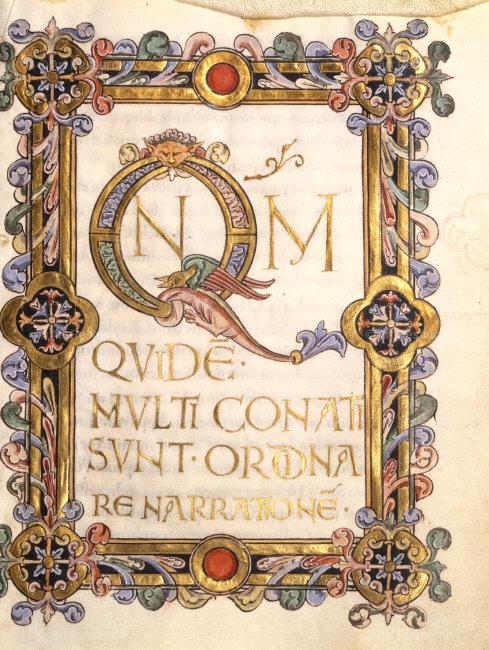 QNM
QVIDĒ·
MVLTI CONATI
SVNT·ORDINA
RE NARRATIONĒ·